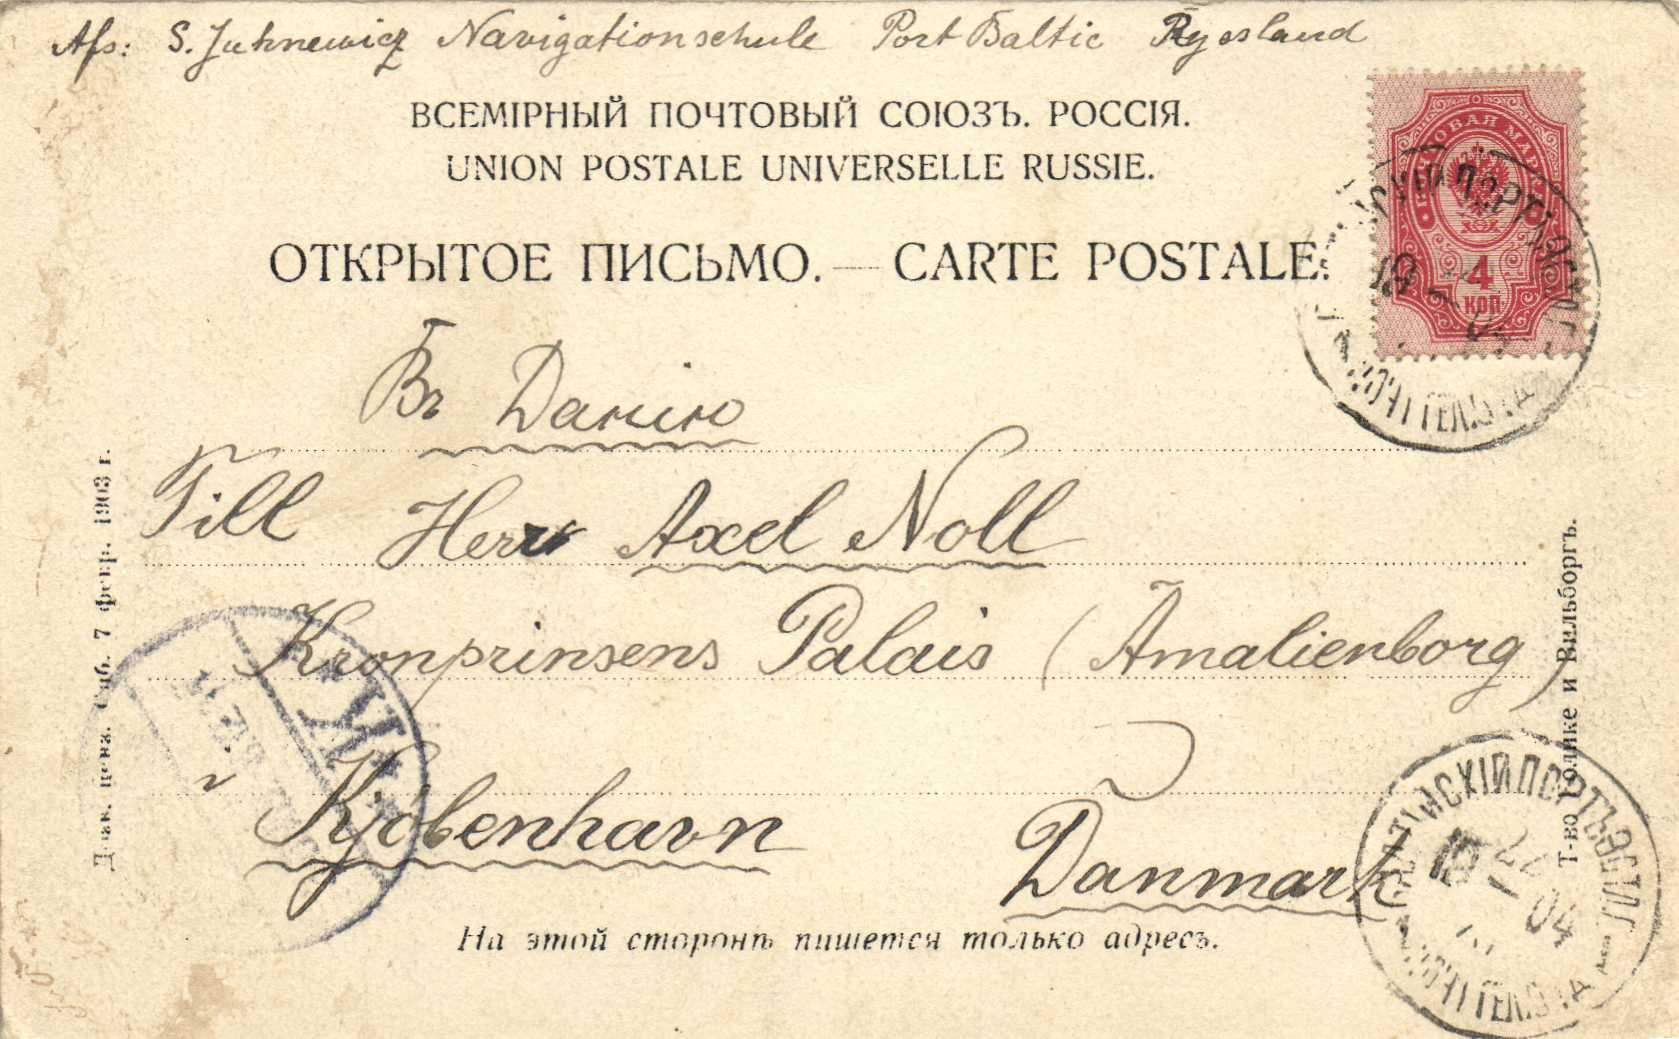 Afs: S. Juhnewicz Navigationschule Port Baltic Rysland
ВСЕМІРНЫЙ ПОЧТОВЫЙ СОЮЗЪ. РОССІЯ.
UNION POSTALE UNIVERSELLE RUSSIE.
ОТКРЫТОЕ ПИСЬМО. — CARTE POSTALE.
ПОЧТОВАЯ МАРКА
4
КОП.
Въ Данію
Till Herr Axel Noll
Kronprinsens Palais (Amalienborg)
i Kjöbenhavn
Danmark
На этой сторонѣ пишется только адресъ.
Дозв. ценз. Спб. 7 февр. 1903 г.
Т-во Голике и Вильборгъ.
БАЛТІЙСКІЙ ПОРТЪ ЭСТЛ. Г.
04